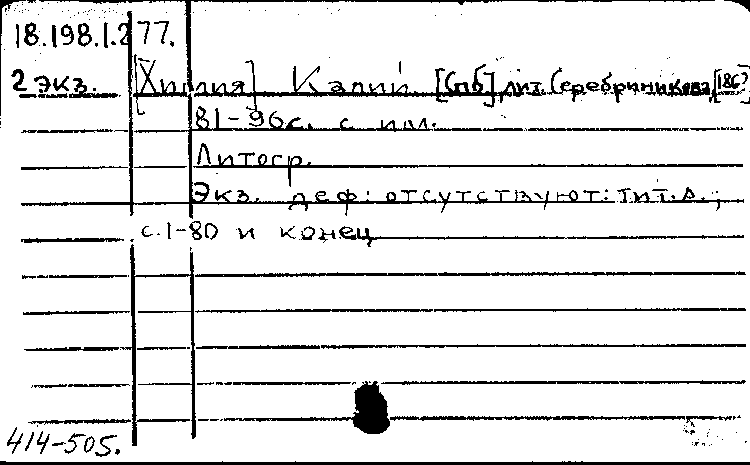 18.198.1.277.
2 экз. [Химия] Калий. [Спб], лит. Серебренникова, [186?]
81-96 с. с ил.
Литогр.
Экз. деф: отсутствуют: тит. л.;
с. 1-80 и конец
414-505.